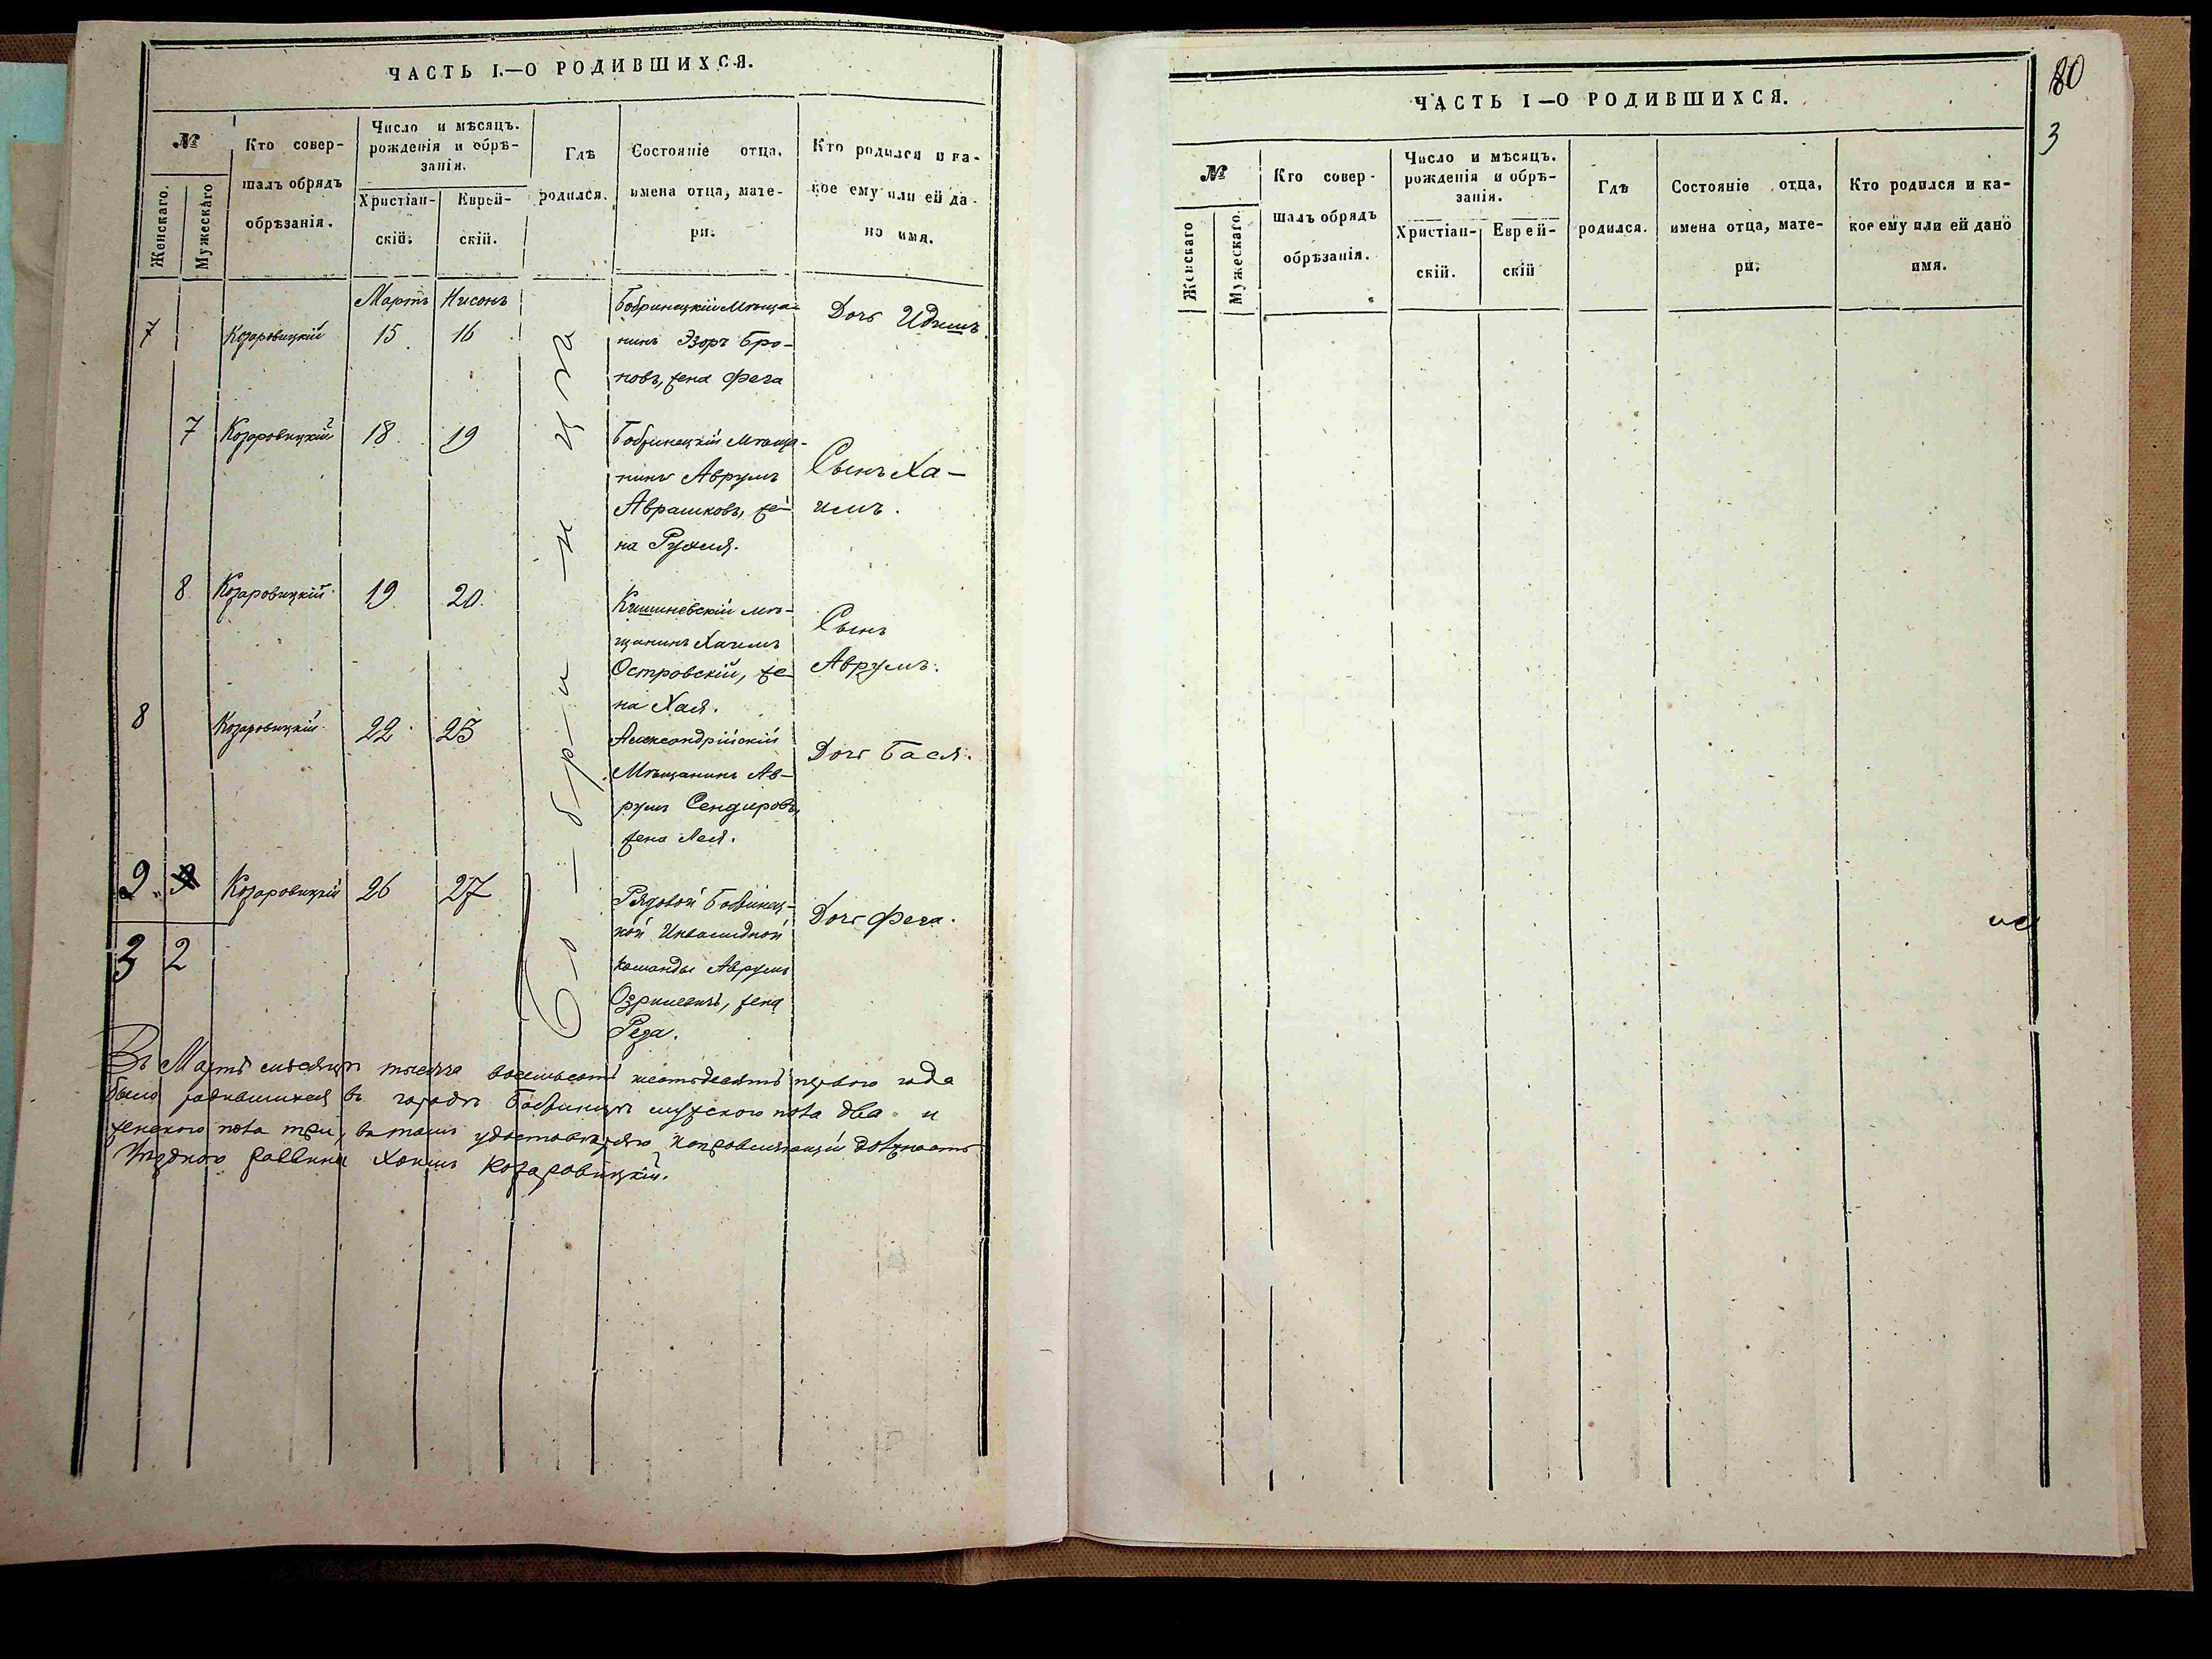 ЧАСТЬ I.—О РОДИВШИХСЯ.
№
Женскаго.
Мужескаго
Кто совер-
шалъ обрядъ
обрѣзанія.
Число и мѣсяцъ.
рожденія и обрѣ-
занія.
Христіан-
скій.
Еврей-
скій.
Гдѣ
родился.
Состояніе отца,
имена отца, мате-
ри.
Кто родился и ка-
кое ему или ей да-
но имя.
Мартъ Нисонъ
7 Козаровицкій 15 16
Бобринецкій Мѣща-
нинъ Эзоръ Бро-
новъ, жена Фега
Дочь Идишъ
7 Козаровицкій 18. 19
Бобринецкій Мѣща-
нинъ Аврумъ
Аврашковъ, же-
на Рухля.
Сынъ Ха-
имъ.
8 Козаровицкій 19. 20.
Кишиневскій мѣ-
щанинъ Хаимъ
Островскій, же-
на Хая.
Сынъ
Аврумъ.
8 Козаровицкій 22 23
Александрійскій
Мѣщанинъ Ав-
румъ Сендировъ,
жена Лея.
Дочь Бася.
9 Козаровицкій 26 27
Рядовой Бобринец-
кой Инвалидной
команды Аврумъ
жена
Реза.
Дочь Фега.
Бобринцѣ
3 2
Въ Мартѣ мѣсяцѣ тысяча восемьсотъ шестьдесятъ перваго года
было родившихся въ городѣ Бобринцѣ мужского пола два и
женского пола три, въ томъ удостовѣряю исправляющій должность
Уѣзднаго раввина Хаимъ Козаровицкій.
ЧАСТЬ I—О РОДИВШИХСЯ.
80
3
№
Женскаго
Мужескаго
Кто совер-
шалъ обрядъ
обрѣзанія.
Число и мѣсяцъ.
рожденія и обрѣ-
занія.
Христіан-
скій.
Еврей-
скій
Гдѣ
родился.
Состояніе отца,
имена отца, мате-
ри.
Кто родился и ка-
кое ему или ей дано
имя.